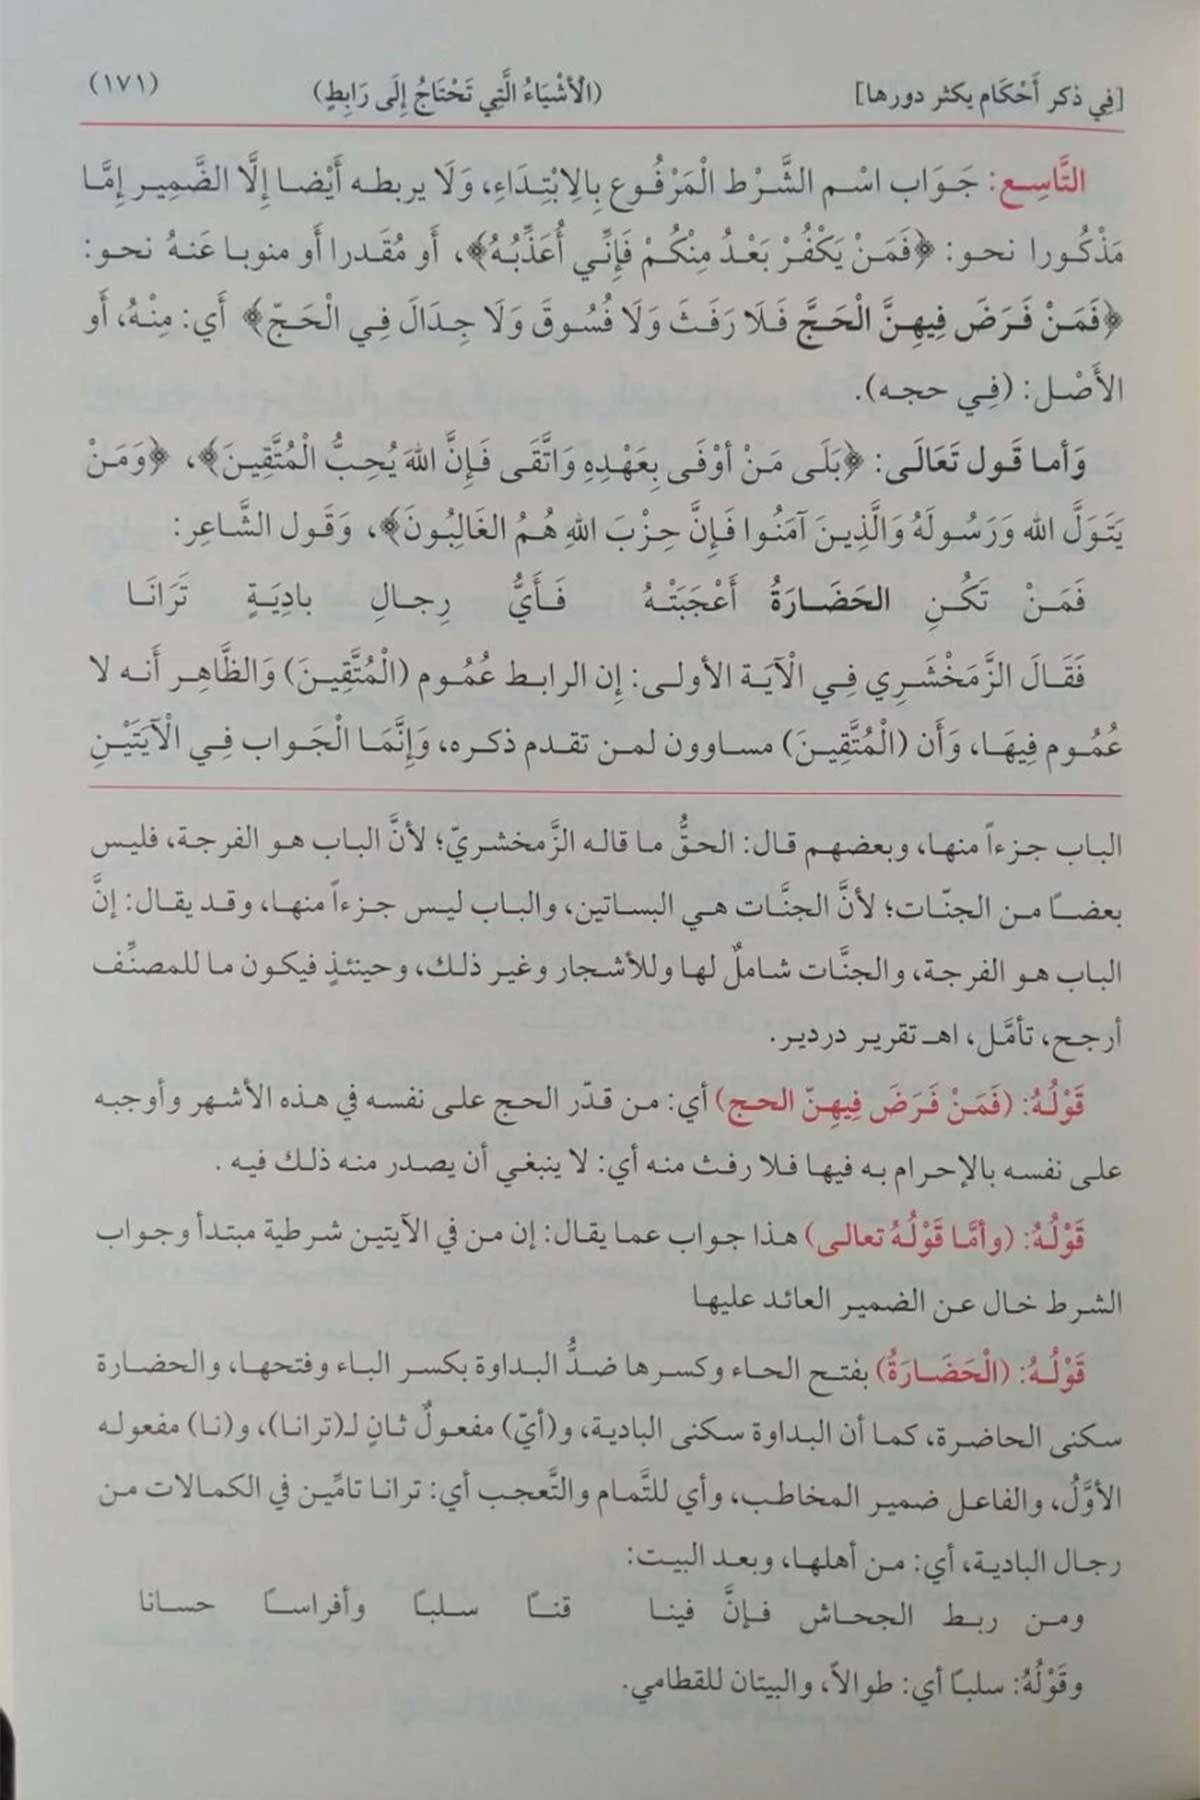 [فِي ذكر أَحْكَام يكثر دورها] (الْأَشْيَاءُ الَّتِي تَحْتَاجُ إِلَى رَابِطٍ) (١٧١)
التَّاسِع: جَوَاب اسْم الشَّرْط الْمَرْفُوع بِالِابْتِدَاءِ، وَلَا يربطه أَيْضا إِلَّا الضَّمِير إِمَّا
مَذْكُورا نحو: ﴿فَمَنْ يَكْفُرْ بَعْدُ مِنْكُمْ فَإِنِّي أُعَذِّبُهُ﴾، أَو مُقَدرا أَو منوبا عَنهُ نحو:
﴿فَمَنْ فَرَضَ فِيهِنَّ الْحَجَّ فَلَا رَفَثَ وَلَا فُسُوقَ وَلَا جِدَالَ فِي الْحَجّ﴾ أَي: مِنْهُ، أَو
الأَصْل: (فِي حجه).
وَأما قَول تَعَالَى: ﴿بَلَى مَنْ أوْفَى بِعَهْدِهِ وَاتَّقَى فَإِنَّ اللهَ يُحِبُّ الْمُتَّقِينَ﴾، ﴿وَمَنْ
يَتَوَلَّ الله وَرَسُولَهُ وَالَّذِينَ آمَنُوا فَإِنَّ حِزْبَ اللهِ هُمُ الغَالِبُونَ﴾، وَقَول الشَّاعِر:
فَمَنْ تَكُنِ الحَضَارَةُ أَعْجَبَتْهُ فَأَيُّ رِجالِ بادِيَةٍ تَرَانَا
فَقَالَ الزَّمَخْشَرِي فِي الْآيَة الأولى: إِن الرابط عُمُوم (الْمُتَّقِينَ) وَالظَّاهِر أَنه لا
عُمُوم فِيهَا، وَأَن (الْمُتَّقِينَ) مساوون لمن تقدم ذكره، وَإِنَّمَا الْجَواب فِي الْآيَتَيْنِ
الباب جزءاً منها، وبعضهم قال: الحقُّ ما قاله الزَّمخشريّ؛ لأنَّ الباب هو الفرجة، فليس
بعضًا من الجنّات؛ لأنَّ الجنَّات هي البساتين، والباب ليس جزءاً منها، وقد يقال: إنَّ
الباب هو الفرجة، والجنَّات شاملٌ لها وللأشجار وغير ذلك، وحينئذٍ فيكون ما للمصنِّف
أرجح، تأمَّل، اهـ تقرير دردير.
قَوْلُهُ: (فَمَنْ فَرَضَ فِيهِنّ الحج) أي: من قدّر الحج على نفسه في هذه الأشهر وأوجبه
على نفسه بالإحرام به فيها فلا رفث منه أي: لا ينبغي أن يصدر منه ذلك فيه .
قَوْلُهُ: (وأمَّا قَوْلُهُ تعالى) هذا جواب عما يقال: إن من في الآيتين شرطية مبتدأ وجواب
الشرط خال عن الضمير العائد عليها
قَوْلُهُ: (الْحَضَارَةُ) بفتح الحاء وكسرها ضدُّ البداوة بكسر الباء وفتحها، والحضارة
سكنى الحاضرة، كما أن البداوة سكنى البادية، و(أيّ) مفعولٌ ثانٍ لـ(ترانا)، و(نا) مفعوله
الأوَّلُ، والفاعل ضمير المخاطب، وأي للتَّمام والتَّعجب أي: ترانا تامِّين في الكمالات من
رجال البادية، أي: من أهلها، وبعد البيت:
ومن ربط الجحاش فإنَّ فينا قنًا سلبًا وأفراسًا حسانا
وقَوْلُهُ: سلبًا أي: طوالاً، والبيتان للقطامي.